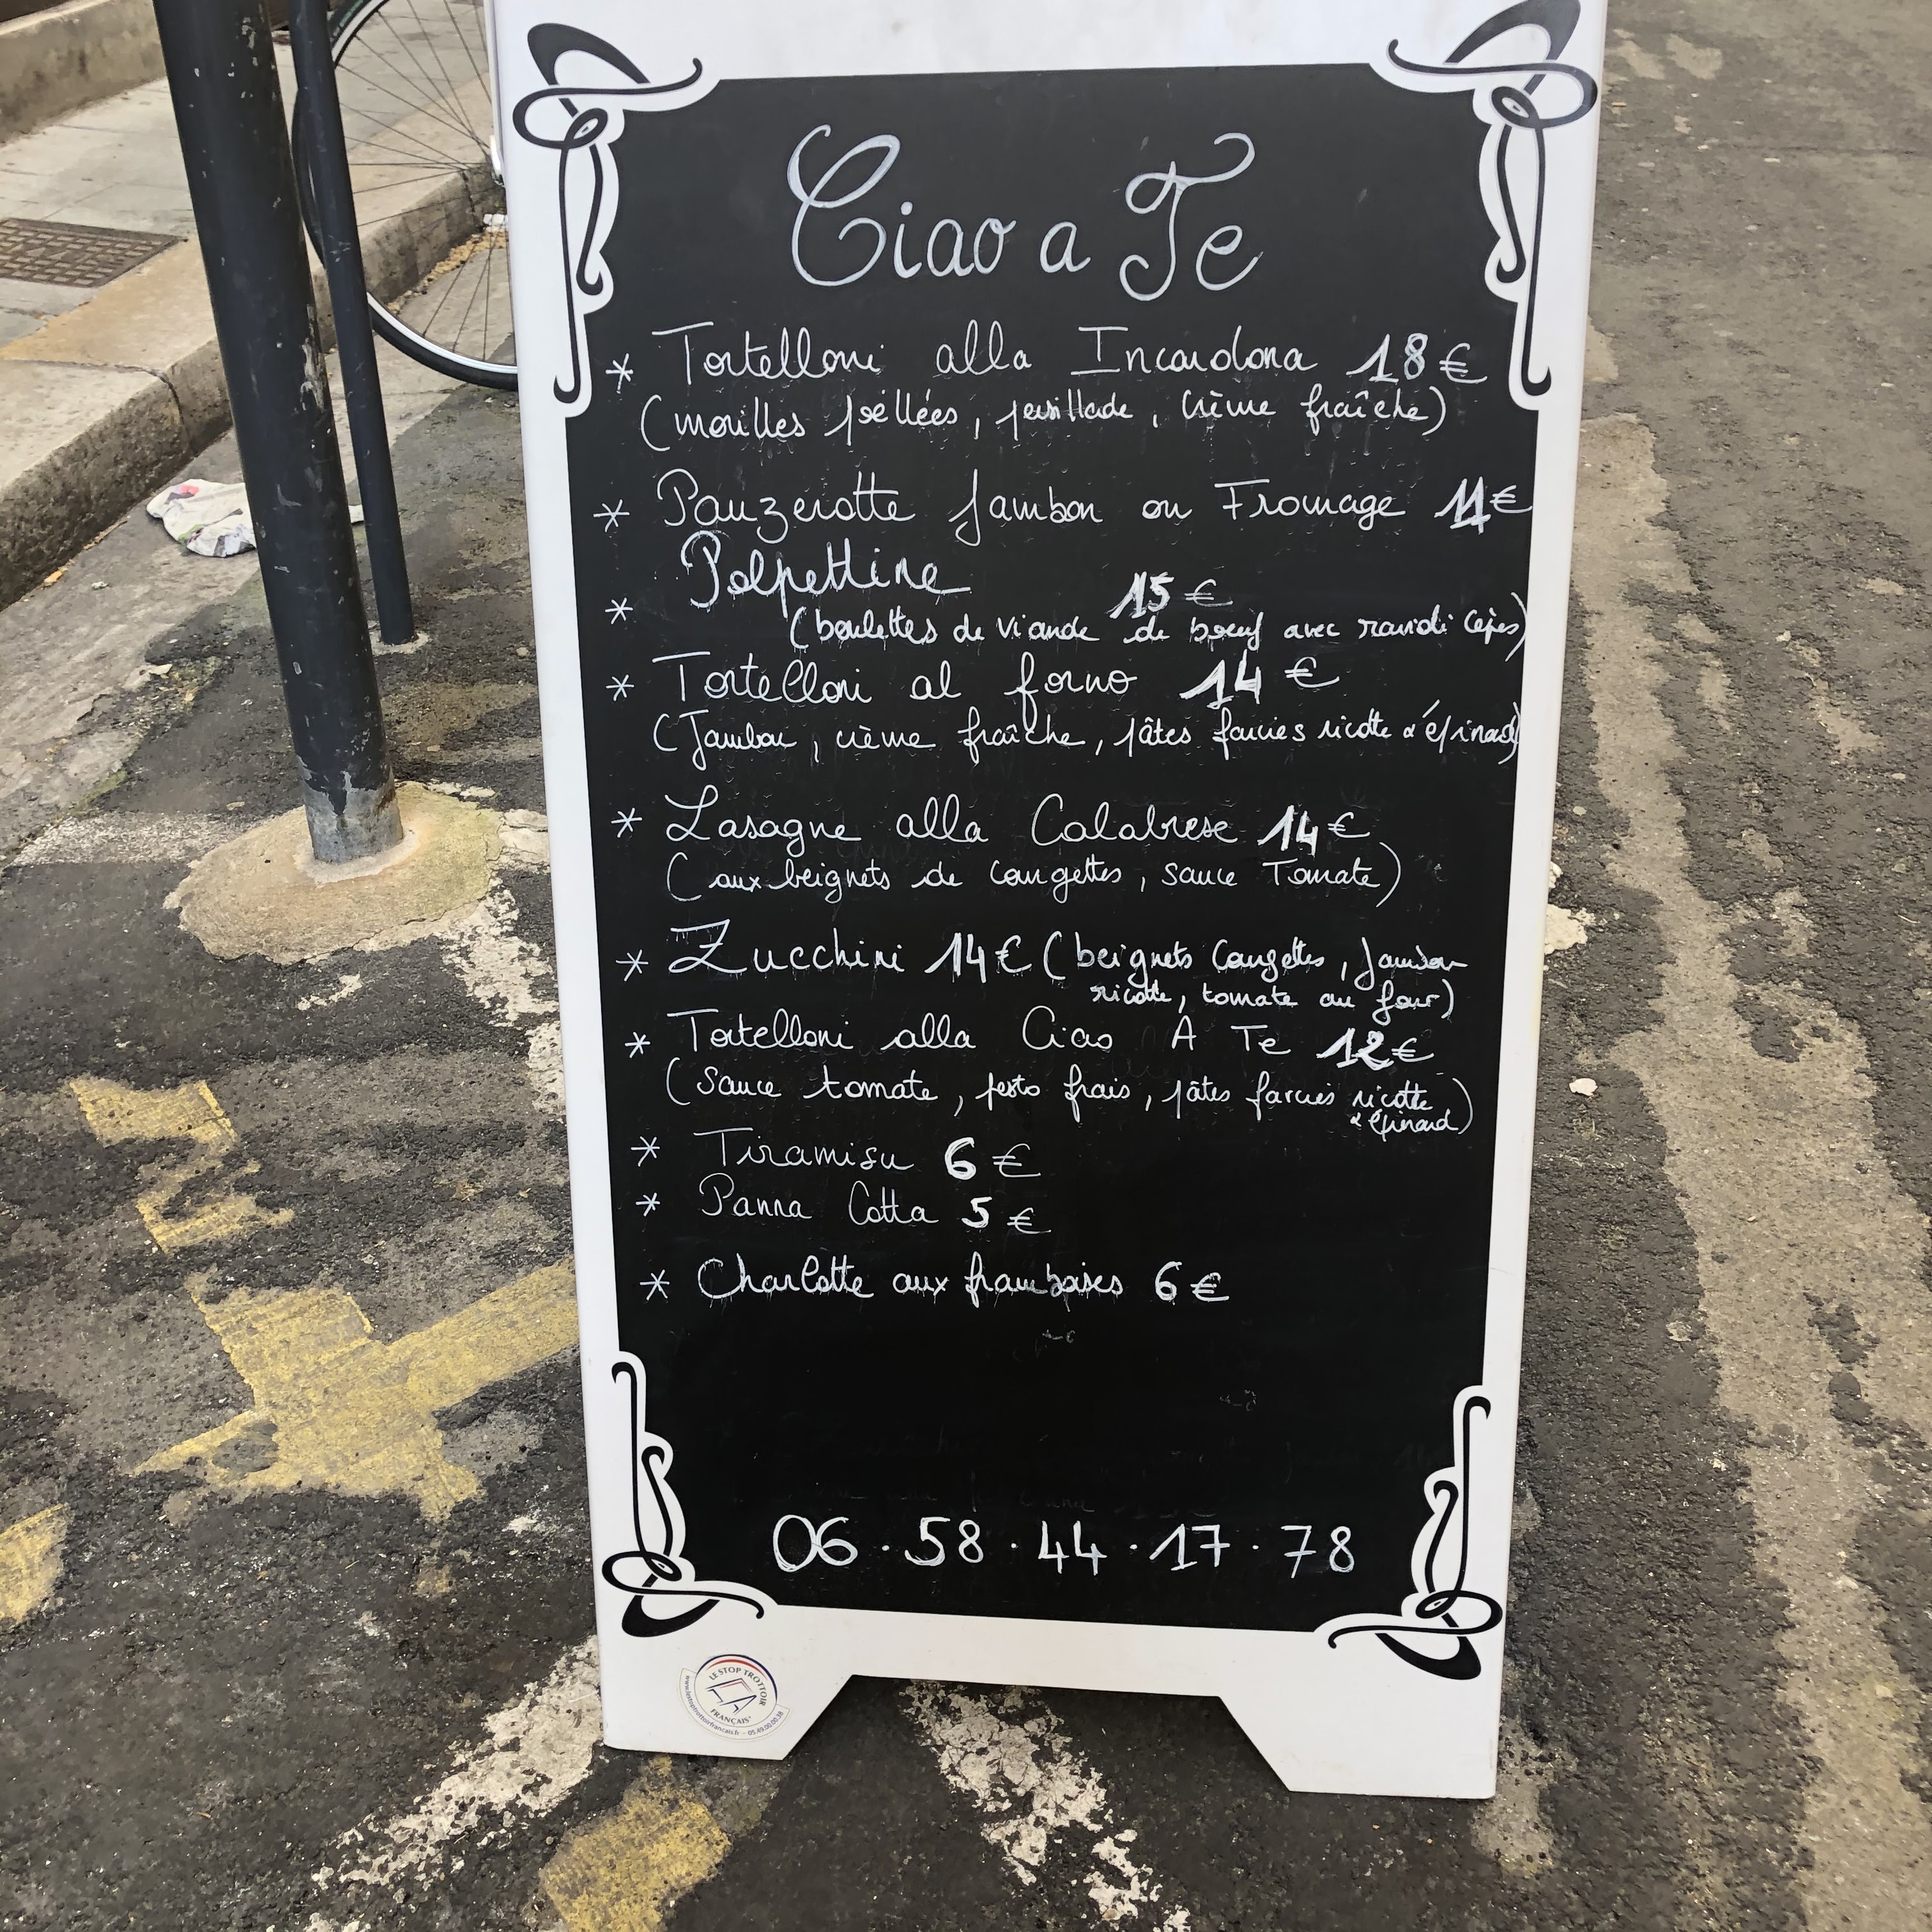 Ciao a Te
* Tortelloni alla Incardona 18€
(morilles poêllées, persillade, crème fraîche)
* Panzerotte Jambon ou Fromage 11€
* Polpettine 15€
(boulettes de viande de boeuf avec ravioli cèpes)
* Tortelloni al forno 14€
(Jambon, crème fraîche, pâtes farcies ricotta & épinard)
* Lasagne alla Calabrese 14€
(aux beignets de courgettes, sauce Tomate)
* Zucchini 14€ (beignets courgettes, jambon
ricotta, tomate au four)
* Tortelloni alla Ciao A Te 12€
(sauce tomate, pesto frais, pâtes farcies ricotta
& épinard)
* Tiramisu 6€
* Panna Cotta 5€
* Charlotte aux framboises 6€
06.58.44.17.78
LE STOP TROTTOIR
FRANÇAIS
www.lestoptrottoirfrancais.fr - 05.49.00.00.38